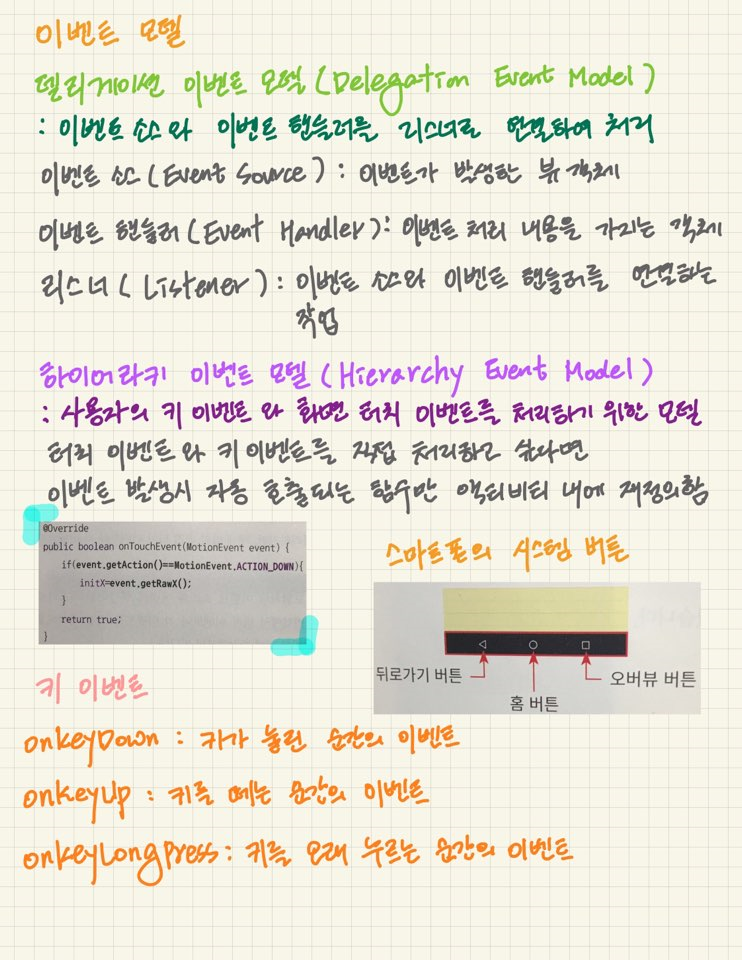 이벤트 모델
델리게이션 이벤트 모델 (Delegation Event Model)
: 이벤트 소스와 이벤트 핸들러를 리스너로 연결하여 처리
이벤트 소스 (Event Source) : 이벤트가 발생한 뷰 객체
이벤트 핸들러 (Event Handler) : 이벤트 처리 내용을 가지는 객체
리스너 (Listener) : 이벤트 소스와 이벤트 핸들러를 연결하는
작업
하이어라키 이벤트 모델 (Hierarchy Event Model)
: 사용자의 키 이벤트와 화면 터치 이벤트를 처리하기 위한 모델
터치 이벤트와 키 이벤트를 직접 처리하고 싶다면
이벤트 발생시 자동 호출되는 함수만 액티비티 내에 재정의함
@Override
public boolean onTouchEvent(MotionEvent event) {
if(event.getAction()==MotionEvent.ACTION_DOWN){
initX=event.getRawX();
}
return true;
}
스마트폰의 시스템 버튼
뒤로가기 버튼
홈 버튼
오버뷰 버튼
키 이벤트
onKeyDown : 키가 눌린 순간의 이벤트
onKeyUp : 키를 떼는 순간의 이벤트
onKeyLongPress : 키를 오래 누르는 순간의 이벤트